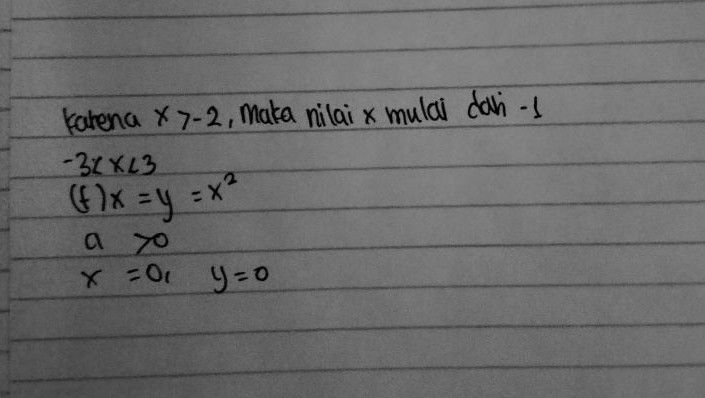 Karena x >-2, Maka nilai x mulai dari -1
-3< x <3
(f)x = y = x²
a >0
x = 0, y = 0